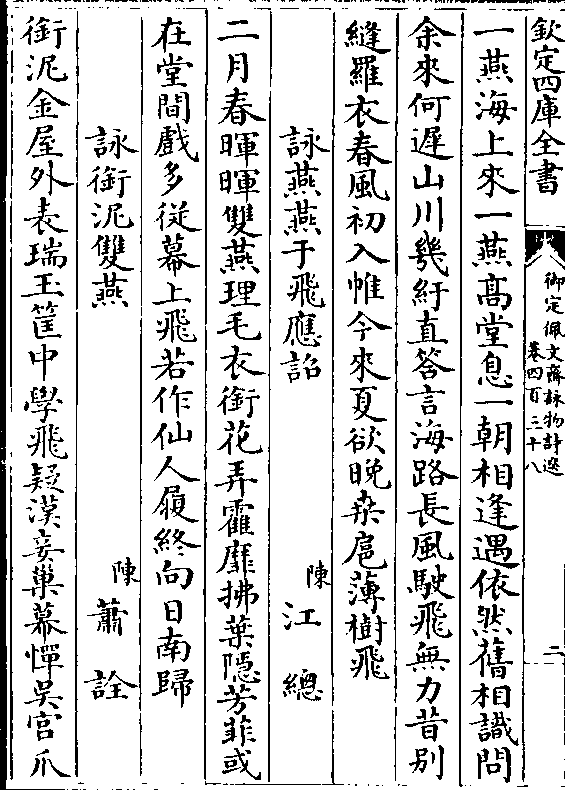 欽定四庫全書
御定佩文齋詠物詩選
卷四百三十八
二
一燕海上來一燕高堂息一朝相逢遇依然舊相識問
余來何遲山川幾紆直答言海路長風駛飛無力昔别
縫羅衣春風初入帷今來夏欲晚桒扈薄樹飛
詠燕燕于飛應詔
陳
江總
二月春暉暉雙燕理毛衣銜花弄霍靡拂葉隱芳菲或
在堂間戲多從幕上飛若作仙人履終向日南歸
詠銜泥雙燕
陳
蕭詮
銜泥金屋外表瑞玉筐中學飛疑漢妾巢幕憚吳宫爪